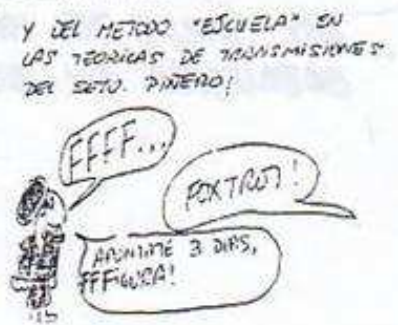 Y DEL METODO "ESCUELA" EN
LAS TEORICAS DE TRANSMISIONES
DEL SGTO. PIÑERO:
FFFF...
FOXTROT!
APUNTATE 3 DIAS,
FFFIGURA!